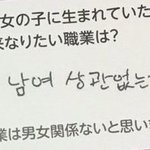 女の子に生まれていた
来なりたい職業は?
남여 상관없는
業は男女関係ないと思い